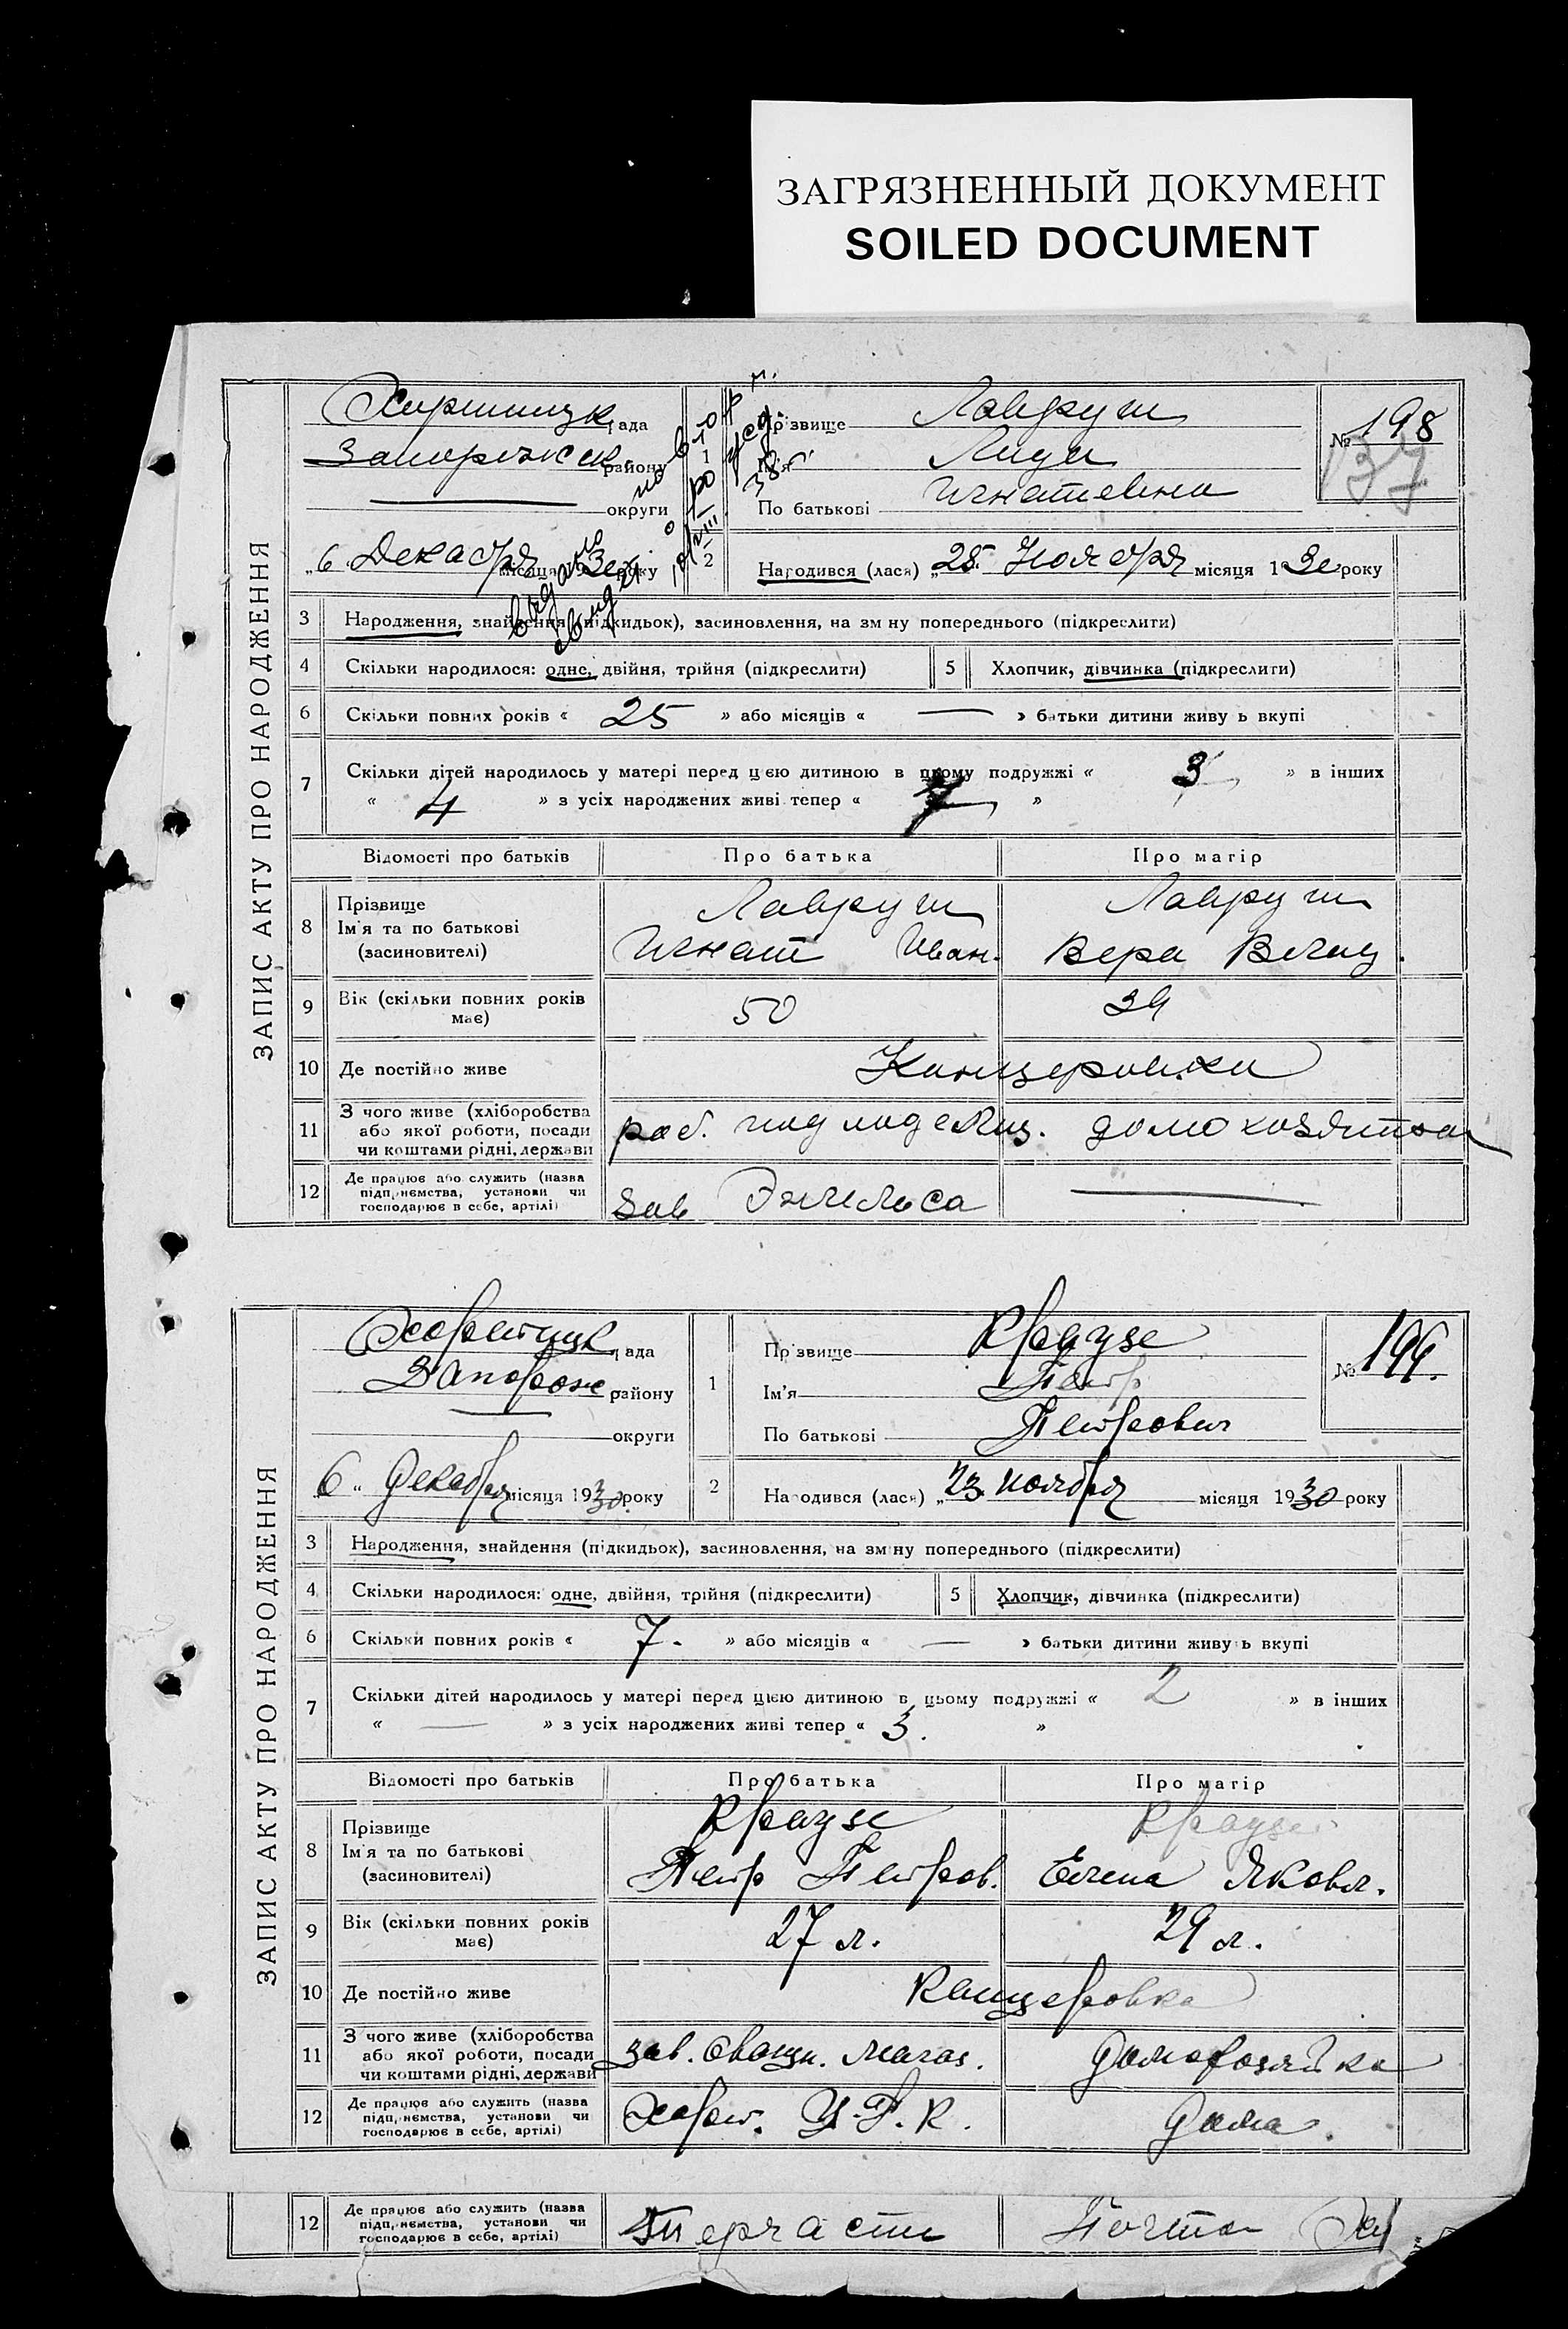 ЗАГРЯЗНЕННЫЙ ДОКУМЕНТ
SOILED DOCUMENT
ЗАПИС АКТУ ПРО НАРОДЖЕННЯ
рада
Запорожск району
округи
„6 Декабря місяця 1930 року
1
Прізвище Лавруш
Ім'я Лида
По батькові Игнатевна
№ 198
137
2
Народився (лася) „25 Ноября місяця 1930 року
3 Народження, знайдення (підкидьок), засиновлення, на зміну попереднього (підкреслити)
4 Скільки народилося: одне, двійня, трійня (підкреслити)
5 Хлопчик, дівчинка (підкреслити)
6 Скільки повних років « 25 » або місяців « — » батьки дитини живуть вкупі
7 Скільки дітей народилось у матері перед цією дитиною в цьому подружжі « 3 » в інших
« 4 » з усіх народжених живі тепер « 7 »
Відомості про батьків Про батька Про матір
8 Прізвище Лавруш Лавруш
Ім'я та по батькові Игнат Иван. Вера
(засиновителі)
9 Вік (скільки повних років має) 50 39
10 Де постійно живе Канцеровка
11 З чого живе (хліборобства або якої роботи, посади чи коштами рідні, держави раб.
12 Де працює або служить (назва підприємства, установи чи господарює в себе, артілі) Зав Энгельса —
ЗАПИС АКТУ ПРО НАРОДЖЕННЯ
Хортицк рада
Запорож району
округи
6 „ Декабря місяця 1930 року
1
Прізвище Краузе
Ім'я Петр
По батькові Петрович
№ 199.
2
Народився (лася) „23 ноября місяця 1930 року
3 Народження, знайдення (підкидьок), засиновлення, на зміну попереднього (підкреслити)
4 Скільки народилося: одне, двійня, трійня (підкреслити)
5 Хлопчик, дівчинка (підкреслити)
6 Скільки повних років « 7. » або місяців « — » батьки дитини живуть вкупі
7 Скільки дітей народилось у матері перед цією дитиною в цьому подружжі « 2 » в інших
« — » з усіх народжених живі тепер « 3. »
Відомості про батьків Про батька Про матір
8 Прізвище Краузе Краузе
Ім'я та по батькові Петр Петров. Елена Яковл.
(засиновителі)
9 Вік (скільки повних років має) 27 л. 29 л.
10 Де постійно живе Канцеровка
11 З чого живе (хліборобства або якої роботи, посади чи коштами рідні, держави зав. овощн. магаз. домохозяйка
12 Де працює або служить (назва підприємства, установи чи господарює в себе, артілі) Хорт. Ц.Р.К. дома.
12 Де працює або служить (назва підприємства, установи чи господарює в себе, артілі) Почта